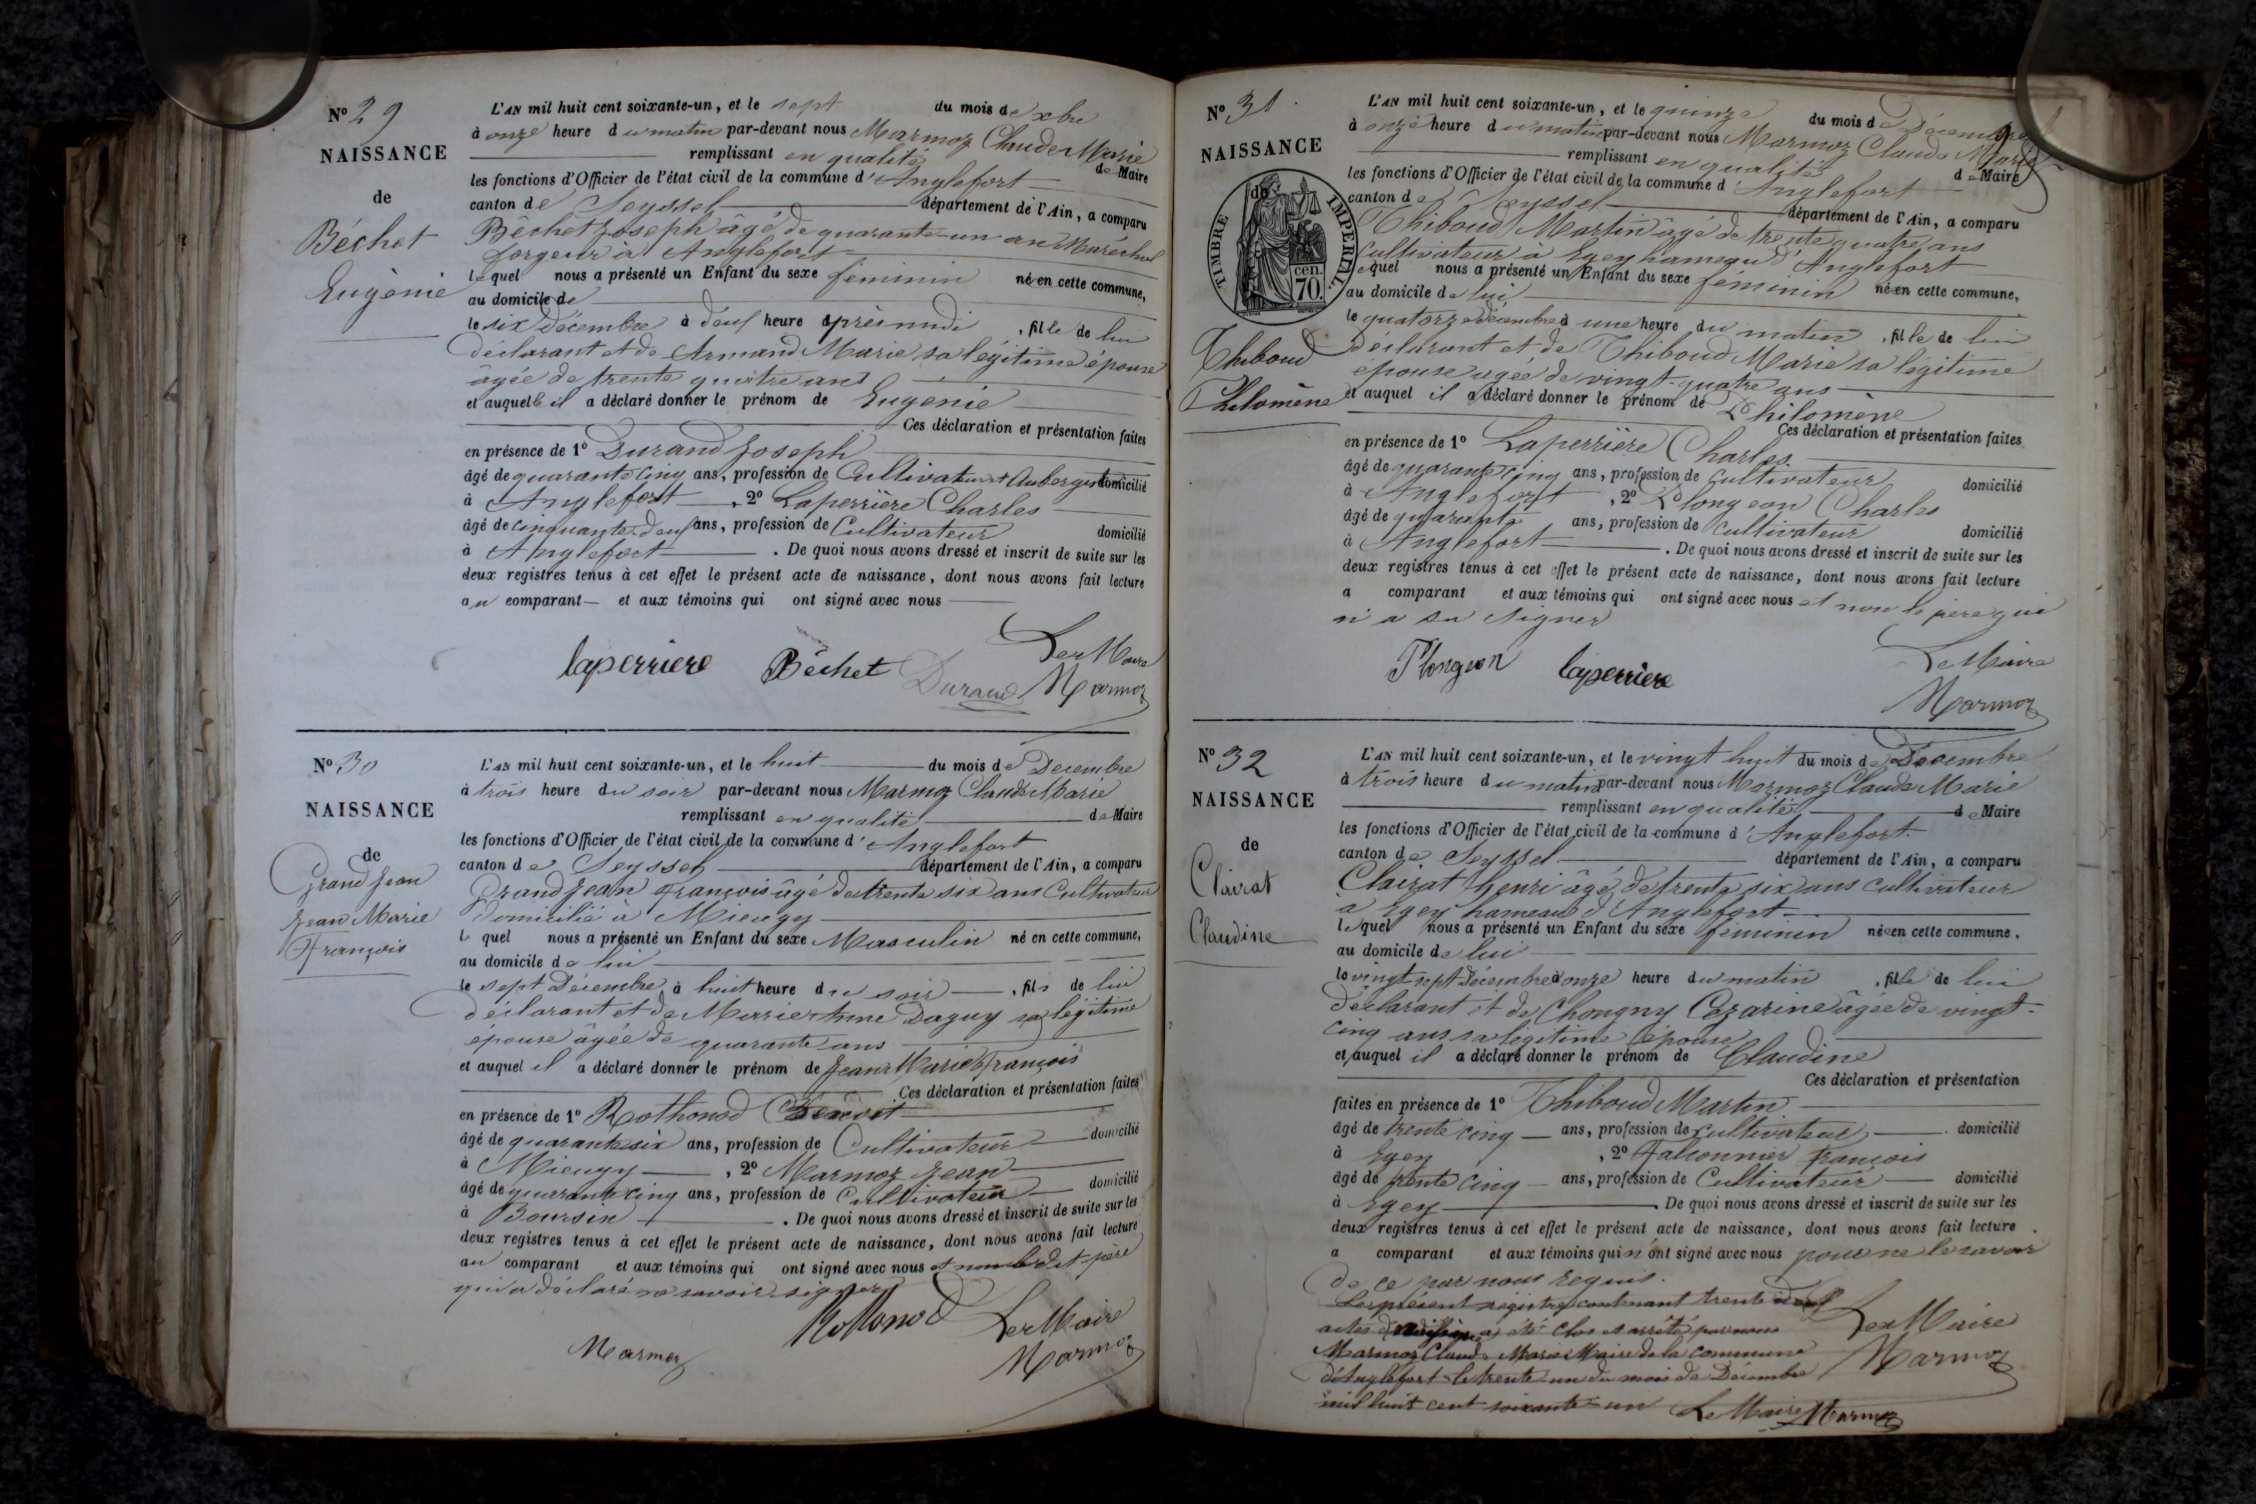 N° 29
NAISSANCE
de
Béchet
Eugènie
L'AN mil huit cent soixante-un, et le sept du mois de xbre
à onze heure du matin par-devant nous Marmoz Claude Marie
remplissant en qualité de Maire
les fonctions d'Officier de l'état civil de la commune d'Anglefort
canton de Seyssel département de l'Ain, a comparu
Béchet Joseph âgé de quarante un an Maréchal
forgeur à Anglefort
lequel nous a présenté un Enfant du sexe féminin né en cette commune,
au domicile de
le six décembre à deux heure après midi, fille de lui
déclarant et de Armand Marie sa légitime épouse
âgée de trente quatre ans
et auquel il a déclaré donner le prénom de Eugènie
Ces déclaration et présentation faites
en présence de 1° Durand Joseph
âgé de quarante cinq ans, profession de Cultivateur et Aubergiste domicilié
à Anglefort, 2° Laperrière Charles
âgé de cinquante deux ans, profession de Cultivateur domicilié
à Anglefort. De quoi nous avons dressé et inscrit de suite sur les
deux registres tenus à cet effet le présent acte de naissance, dont nous avons fait lecture
au comparant et aux témoins qui ont signé avec nous
laperriere Béchet Durand Le Maire
Marmoz
N° 30
NAISSANCE
de
Grand Jean
Jean Marie
François
L'AN mil huit cent soixante-un, et le huit du mois de Décembre
à trois heure du soir par-devant nous Marmoz Claude Marie
remplissant en qualité de Maire
les fonctions d'Officier de l'état civil de la commune d'Anglefort
canton de Seyssel département de l'Ain, a comparu
Grand Jean François âgé de trente six ans Cultivateur
domicilié à Mieugy
lequel nous a présenté un Enfant du sexe Masculin né en cette commune,
au domicile de lui
le sept Décembre à huit heure du soir, fils de lui
déclarant et de Marie Anne Daguy sa légitime
épouse âgée de quarante ans
et auquel il a déclaré donner le prénom de Jean Marie François
Ces déclaration et présentation faites
en présence de 1° Rothonod Benoit
âgé de quarante six ans, profession de Cultivateur domicilié
à Mieugy, 2° Marmoz Jean
âgé de quarante cinq ans, profession de Cultivateur domicilié
à Boursin. De quoi nous avons dressé et inscrit de suite sur les
deux registres tenus à cet effet le présent acte de naissance, dont nous avons fait lecture
au comparant et aux témoins qui ont signé avec nous et non le dit père
qui a déclaré ne savoir signer
Rottonod Le Maire
Marmoz Marmoz
N° 31
NAISSANCE
de
TIMBRE IMPERIAL.
cen.
70.
Thiboud
Philomène
L'AN mil huit cent soixante-un, et le quinze du mois de Décembre
à onze heure du matin par-devant nous Marmoz Claude Marie
remplissant en qualité de Maire
les fonctions d'Officier de l'état civil de la commune d'Anglefort
canton de Seyssel département de l'Ain, a comparu
Thiboud Martin âgé de trente quatre ans
Cultivateur à Egey hameau d'Anglefort
lequel nous a présenté un Enfant du sexe féminin née en cette commune,
au domicile de lui
le quatorze décembre à une heure du matin, fille de lui
déclarant et de Thiboud Marie sa légitime
épouse agée de vingt-quatre ans
et auquel il a déclaré donner le prénom de Philomène
Ces déclaration et présentation faites
en présence de 1° Laperrière Charles
âgé de quarante cinq ans, profession de cultivateur domicilié
à Anglefort, 2° Plongeon Charles
âgé de quarante ans, profession de cultivateur domicilié
à Anglefort. De quoi nous avons dressé et inscrit de suite sur les
deux registres tenus à cet effet le présent acte de naissance, dont nous avons fait lecture
a comparant et aux témoins qui ont signé avec nous et non le père qui
n'a su signer
Plongeon laperriere Le Maire
Marmoz
N° 32
NAISSANCE
de
Clairat
Claudine
L'AN mil huit cent soixante-un, et le vingt huit du mois de Décembre
à trois heure du matin par-devant nous Marmoz Claude Marie
remplissant en qualité de Maire
les fonctions d'Officier de l'état civil de la commune d'Anglefort
canton de Seyssel département de l'Ain, a comparu
Clairat henri âgé de trente six ans cultivateur
à Egey hameau d'Anglefort
lequel nous a présenté un Enfant du sexe féminin née en cette commune,
au domicile de lui
le vingt sept décembre à onze heure du matin, fille de lui
déclarant et de Chongny Cezarine âgée de vingt-
cinq ans sa légitime épouse
et auquel il a déclaré donner le prénom de Claudine
Ces déclaration et présentation
faites en présence de 1° Thiboud Martin
âgé de trente cinq ans, profession de cultivateur domicilié
à Egey, 2° Falconnier françois
âgé de trente cinq ans, profession de Cultivateur domicilié
à Egey. De quoi nous avons dressé et inscrit de suite sur les
deux registres tenus à cet effet le présent acte de naissance, dont nous avons fait lecture
a comparant et aux témoins qui n'ont signé avec nous pour ne le savoir
de ce par nous requis.
Le présent registre contenant trente deux
actes de naissance a été clos et arrêté par nous
Marmoz Claude Marie Maire de la commune
d'Anglefort le trente un du mois de Décembre
mil huit cent soixante-un
Le Maire
Marmoz
Le Maire Marmoz